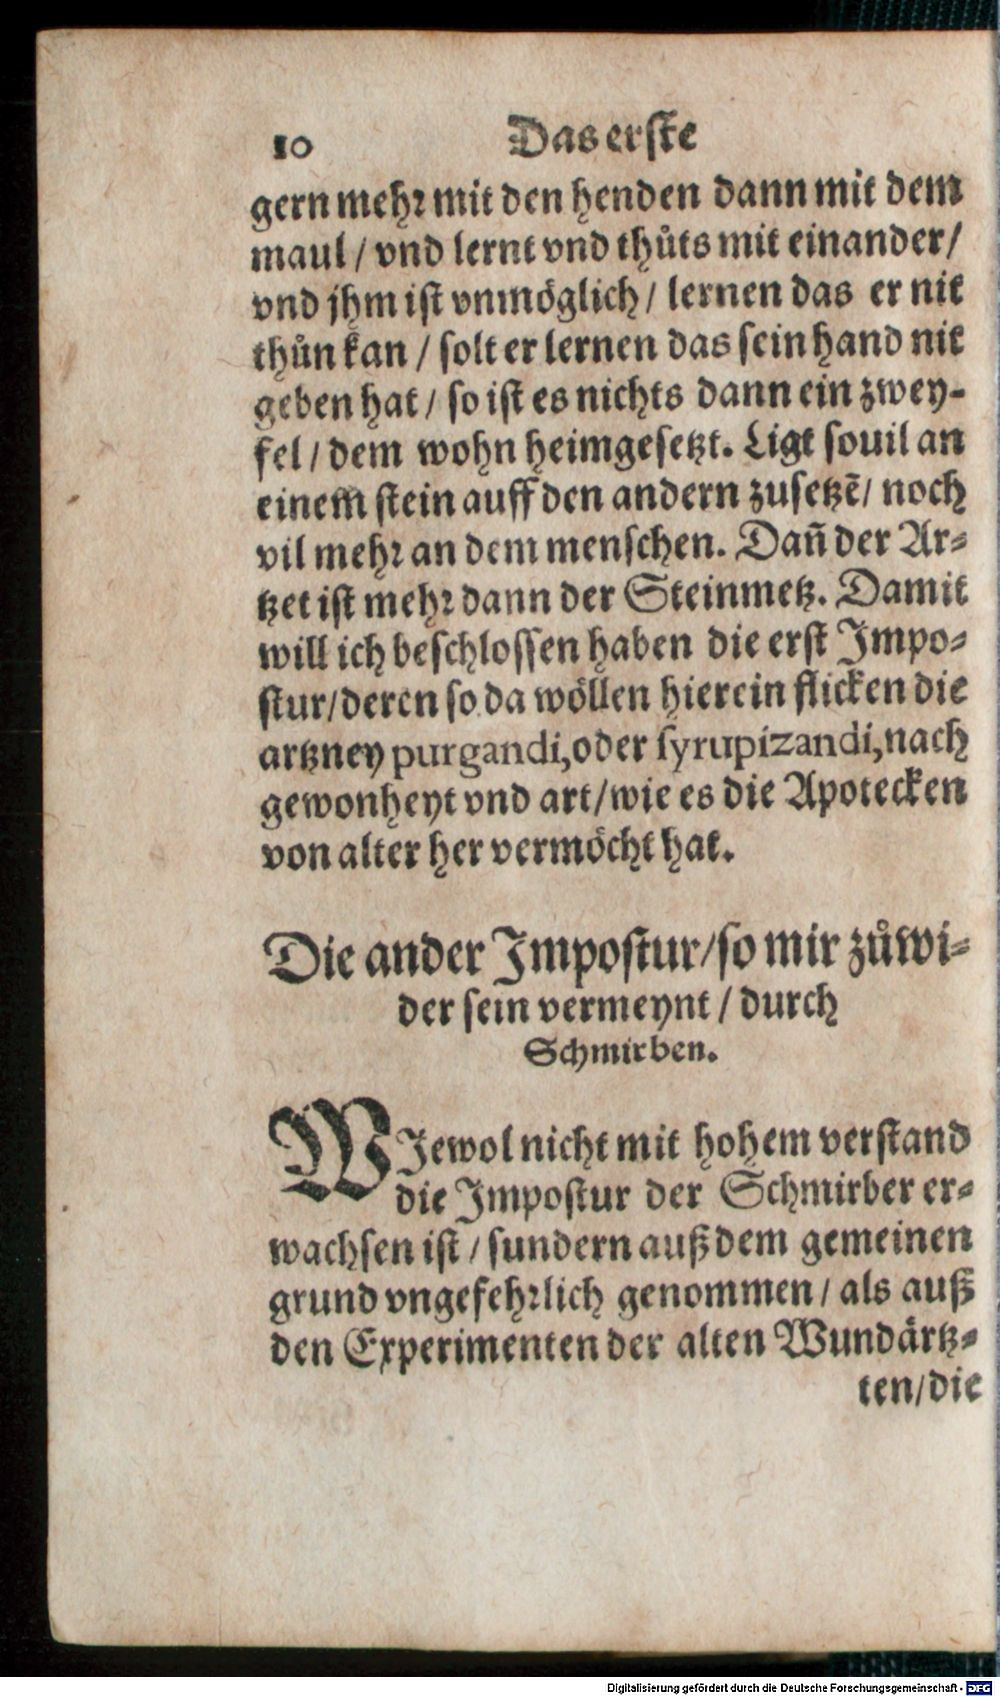 10 Das erste
gern mehr mit den henden dann mit dem
maul / vnd lernt vnd thůts mit einander /
vnd jhm ist vnmöglich / lernen das er nit
thůn kan / solt er lernen das sein hand nit
geben hat / so ist es nichts dann ein zwey-
fel / dem wohn heimgesetzt. Ligt souil an
einem stein auff den andern zusetzē / noch
vil mehr an dem menschen. Dañ der Ar-
tzet ist mehr dann der Steinmetz. Damit
will ich beschlossen haben die erst Impo-
stur / deren so da wöllen hierein flicken die
artzney purgandi, oder syrupizandi, nach
gewonheyt vnd art / wie es die Apotecken
von alter her vermöcht hat.
Die ander Impostur / so mir zůwi-
der sein vermeynt / durch
Schmirben.
WIewol nicht mit hohem verstand
die Impostur der Schmirber er-
wachsen ist / sundern auß dem gemeinen
grund vngefehrlich genommen / als auß
den Experimenten der alten Wundärtz-
ten / die
Digitalisierung gefördert durch die Deutsche Forschungsgemeinschaft - DFG